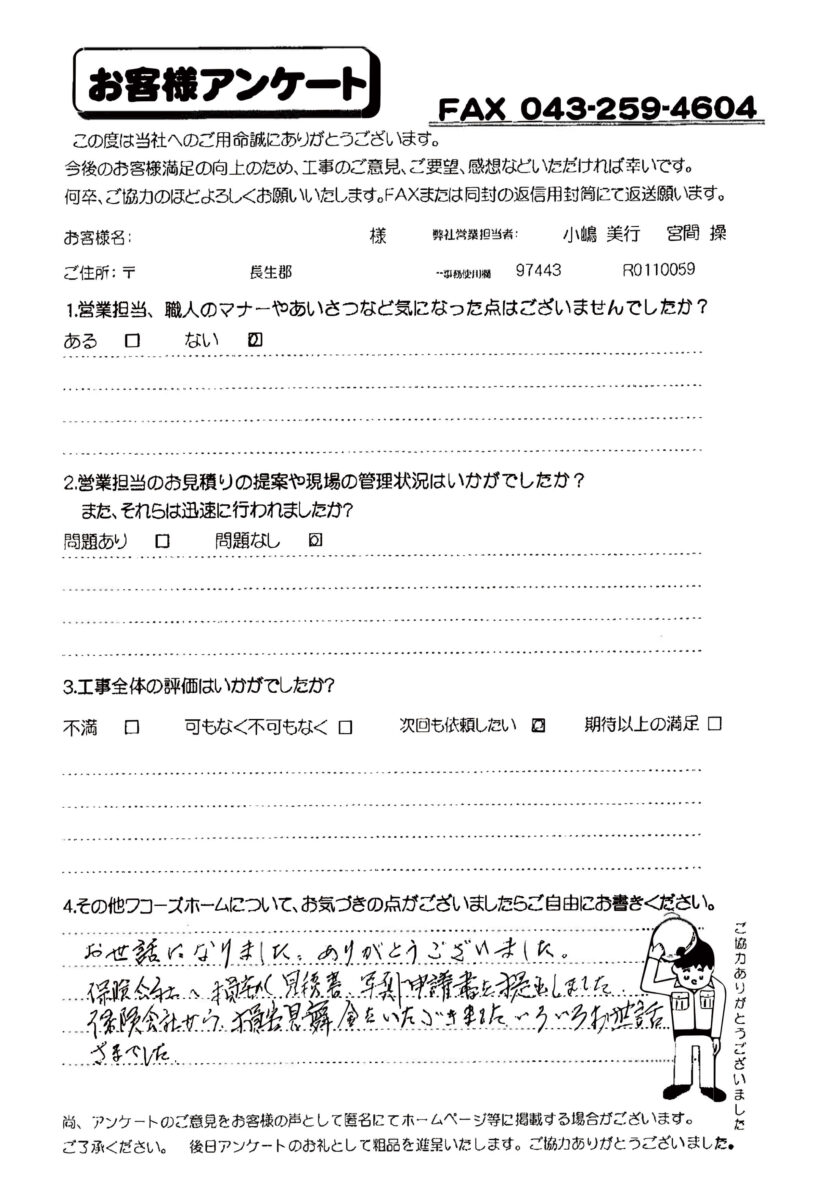 お客様アンケート
FAX 043-259-4604
この度は当社へのご用命誠にありがとうございます。
今後のお客様満足の向上のため、工事のご意見、ご要望、感想などいただければ幸いです。
何卒、ご協力のほどよろしくお願いいたします。FAXまたは同封の返信用封筒にて返送願います。
お客様名: 様 弊社営業担当者: 小嶋 美行 宮間 操
ご住所:〒 長生郡 --事務使用欄 97443 R0110059
1.営業担当、職人のマナーやあいさつなど気になった点はございませんでしたか?
ある □ ない ☑
2.営業担当のお見積りの提案や現場の管理状況はいかがでしたか?
また、それらは迅速に行われましたか?
問題あり □ 問題なし ☑
3.工事全体の評価はいかがでしたか?
不満 □ 可もなく不可もなく □ 次回も依頼したい ☑ 期待以上の満足 □
4.その他ワコーズホームについて、お気づきの点がございましたらご自由にお書きください。
お世話になりました。ありがとうございました。
保険会社へ 見積書、写真、申請書を提出しました
保険会社から、損害見舞金をいただきました いろいろお世話
さまでした
ご協力ありがとうございました
尚、アンケートのご意見をお客様の声として匿名にてホームページ等に掲載する場合がございます。
ご了承ください。 後日アンケートのお礼として粗品を進呈いたします。ご協力ありがとうございました。